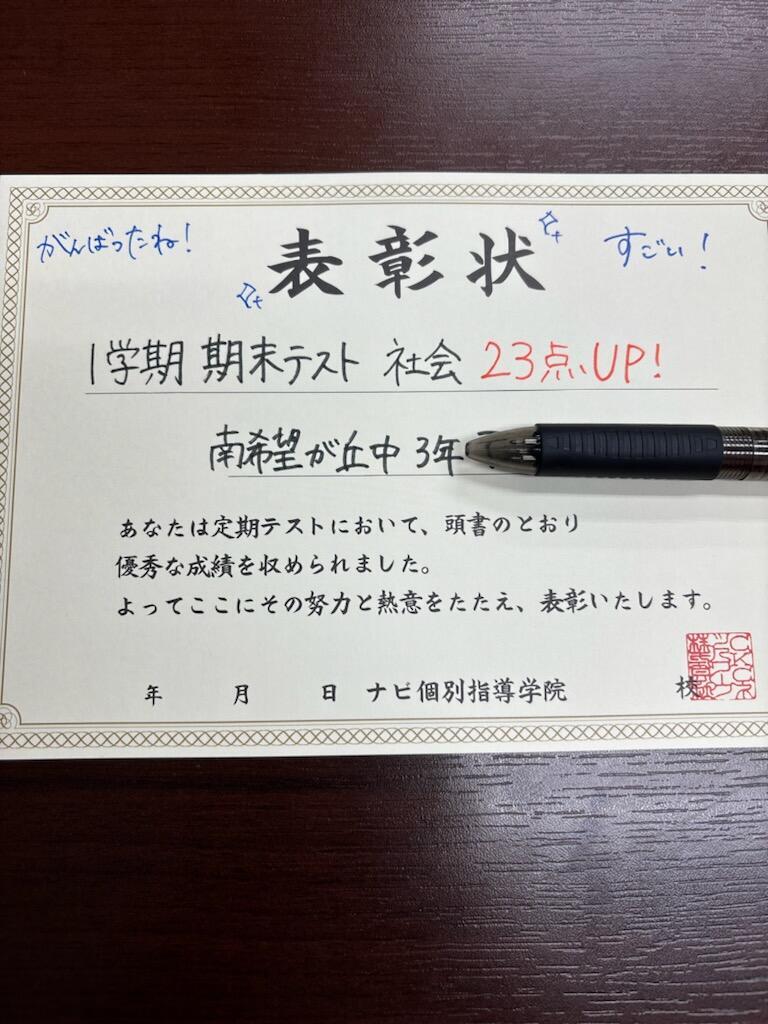 がんばったね!
表彰状
すごい!
1学期 期末テスト 社会 23点UP!
南希望が丘中 3年
あなたは定期テストにおいて、頭書のとおり
優秀な成績を収められました。
よってここにその努力と熱意をたたえ、表彰いたします。
年 月 日 ナビ個別指導学院 校